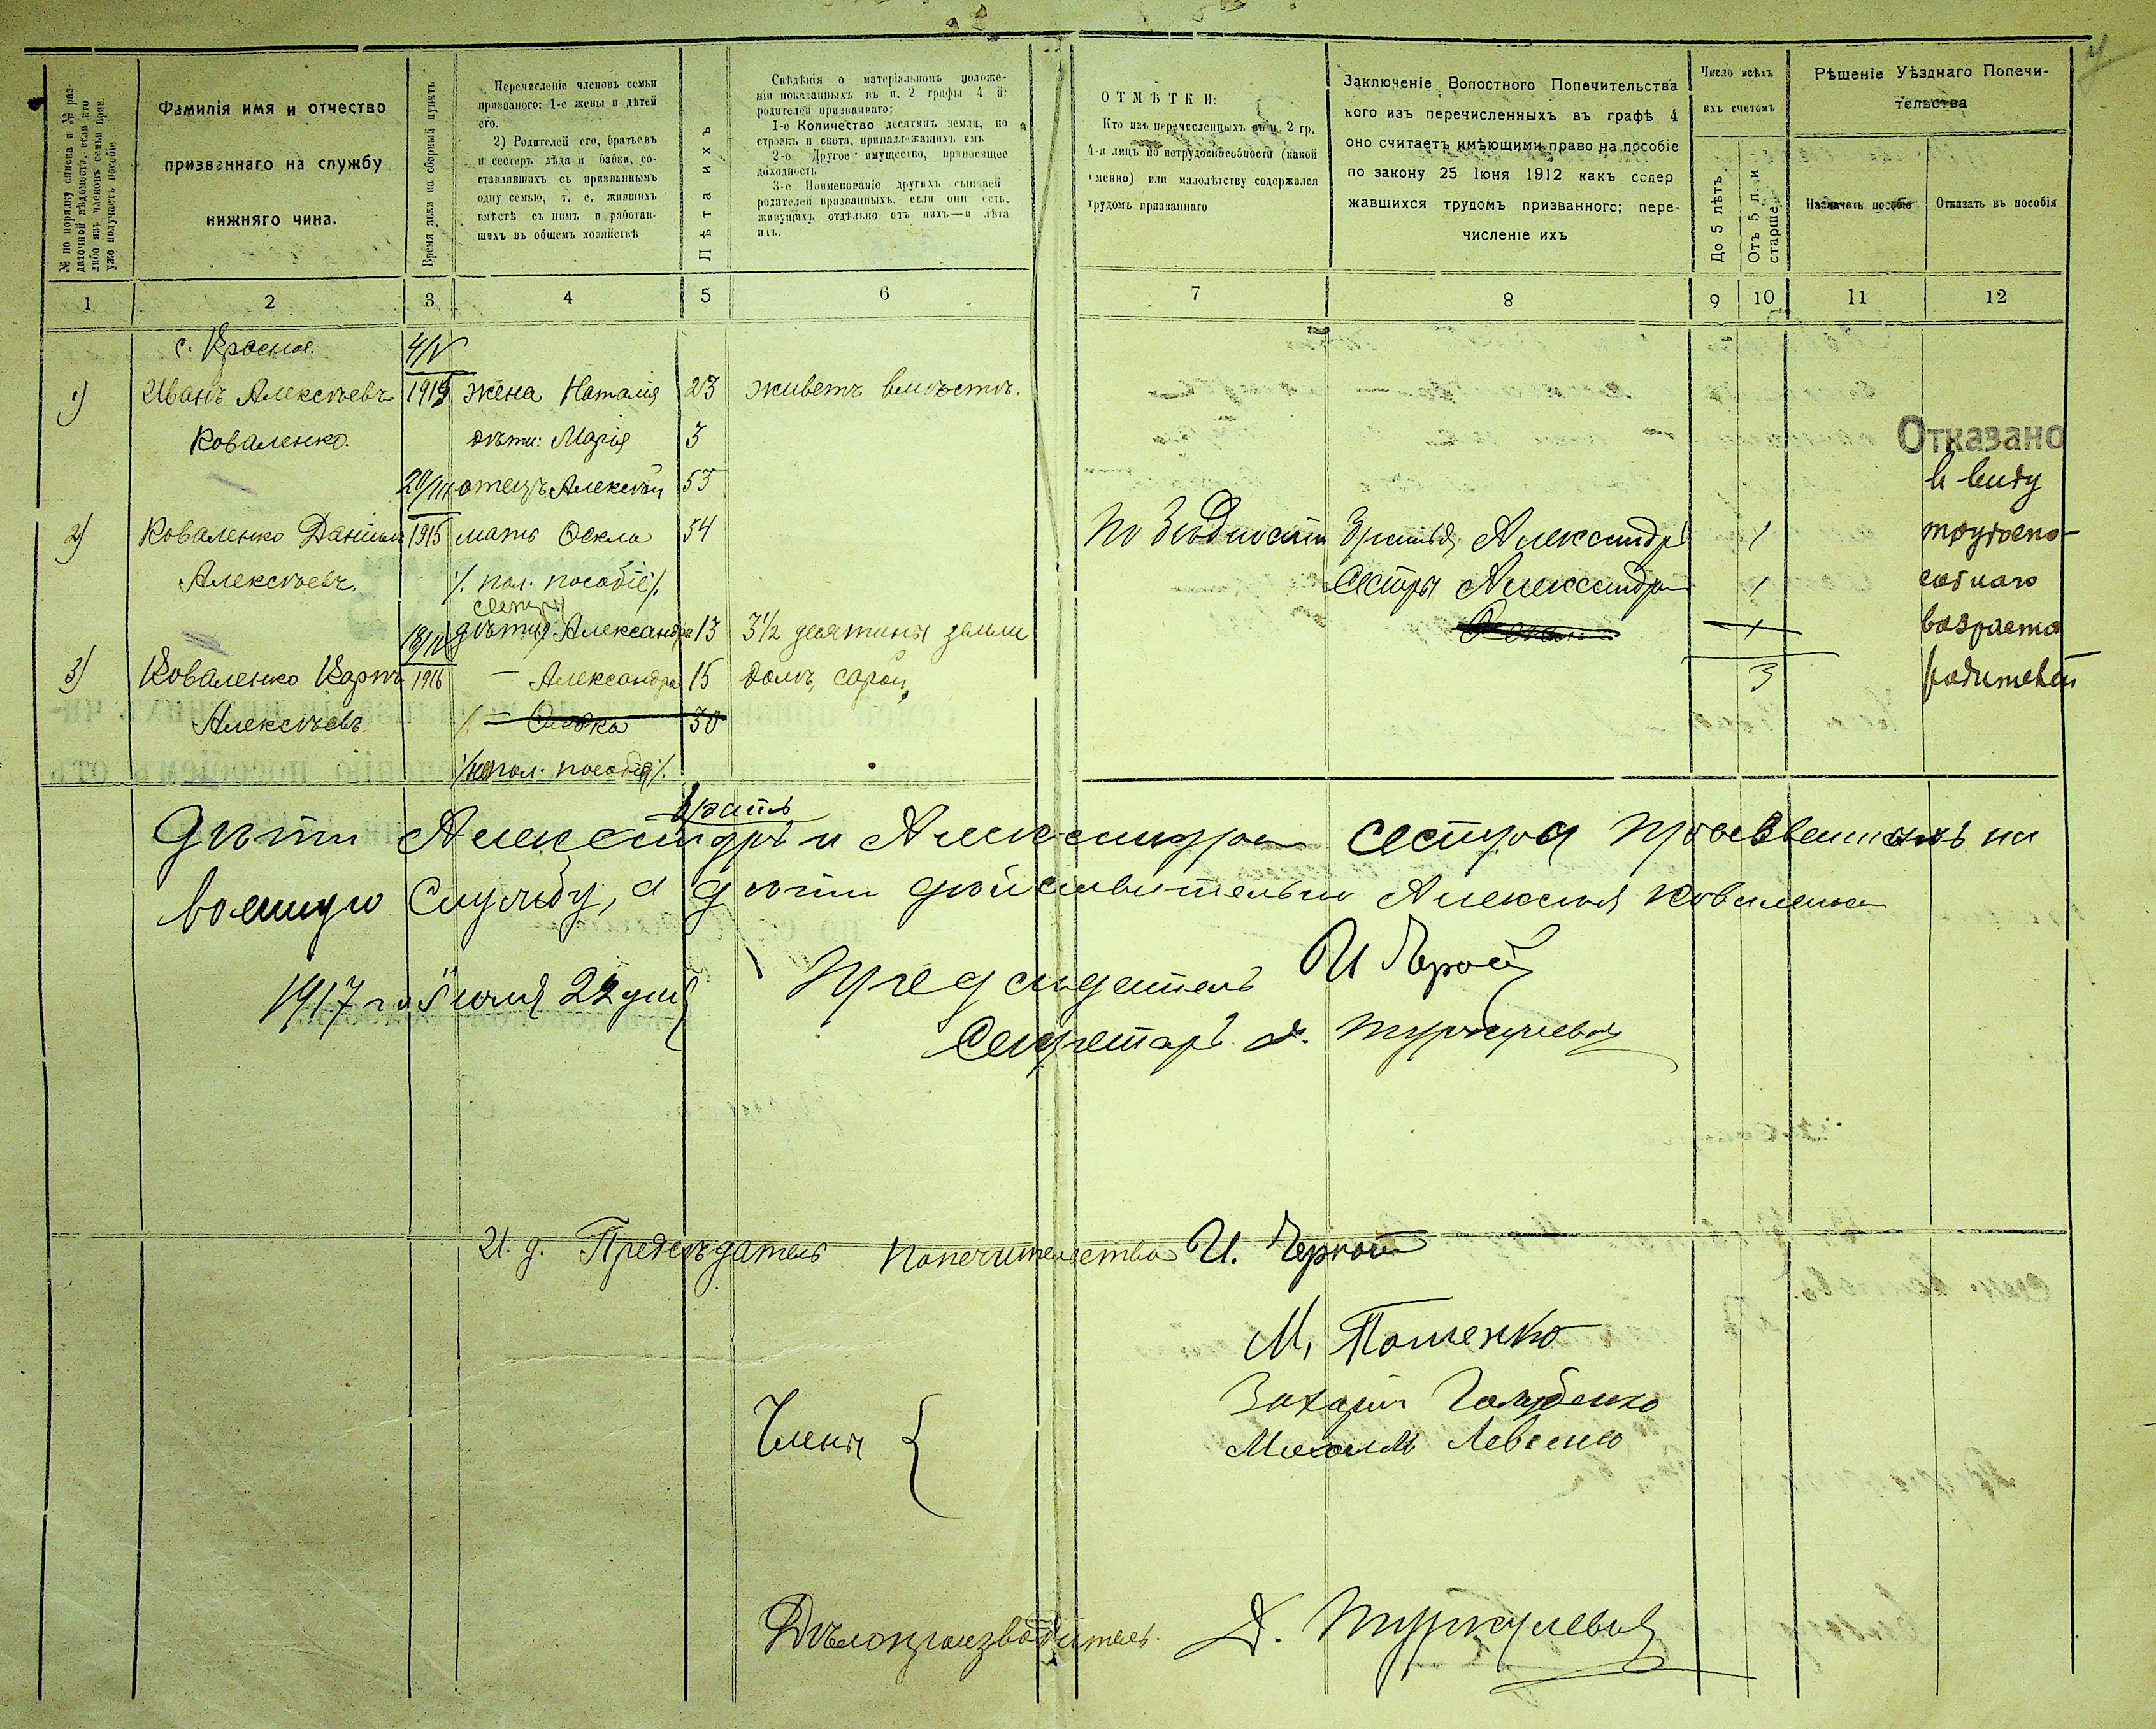 № по порядку списка и № раз-
даточной вѣдомости, если кто
либо изъ членовъ семьи призв.
уже получаетъ пособіе
Фамилія имя и отчество
призваннаго на службу
нижняго чина.
Время явки на сборный пунктъ
Перечисленіе членовъ семьи
призваного: 1-е жены и дѣтей
его.
2) Родителей его, братьевъ
и сестеръ дѣда и бабки, со-
ставлявшихъ съ призваннымъ
одну семью, т. е. жившихъ
вмѣстѣ съ нимъ и работав-
шихъ въ общемъ хозяйствѣ
Лѣта ихъ
Свѣдѣнія о матеріяльномъ положе-
ніи показанныхъ въ п. 2 графы 4 й:
родителей призваннаго;
1-е Количество десятинъ земли, по
строекъ и скота, принадлежащихъ имъ
2-е Другое имущество, приносящее
доходность
3-е Поименованіе другихъ сыновей
родителей призванныхъ, если они есть,
живущихъ отдѣльно отъ нихъ—и лѣта
ихъ.
ОТМѢТКИ:
Кто изъ перечесленныхъ въ п. 2 гр.
4-я лицъ по нетрудоспособности (какой
именно) или малолѣтству содержался
трудомъ призваннаго
Заключеніе Волостного Попечительства
кого изъ перечисленныхъ въ графѣ 4
оно считаетъ имѣющими право на пособіе
по закону 25 Іюня 1912 какъ содер
жавшихся трудомъ призванного; пере-
численіе ихъ
Число всѣхъ
ихъ счетомъ
До 5 лѣтъ
Отъ 5 л. и
старше
Рѣшеніе Уѣзднаго Попечи-
тельства
Назначать пособіе
Отказать въ пособія
1 2 3 4 5 6 7 8 9 10 11 12
с. Красное. 4/V
1) Иванъ Алексѣевъ 1915 жена Наталія 23 живетъ вмѣстѣ.
Коваленко. дѣти: Марія 3 Отказано
20/III отецъ Алексѣй 53 в виду
2) Коваленко Даніилъ 1915 мать Ѳекла 54 По бѣдности братья Александръ 1 трудоспо-
Алексѣевъ. /. пол. пособіе /. Сестры Александра 1 собнаго
сестры
дѣти Александръ 13 3½ десятины земли 1 возраста
3) Коваленко Карпъ 1916 — Александра 15 домъ, сарай, 3 родителей
Алексѣевъ. 30
пол. пособія /.
братъ
Дѣти Александръ и Александра сестра призванныхъ на
военную службу, а дѣти дѣйствительно Алексѣя Коваленка
1917 го Іюля 22 дня
Предсѣдатель И Черной
Секретарь
И. д. Предсѣдателя попечительства И. Черной
М. Пошенко
Захарій Голубенко
Члены {
Михаилъ Левенко
Дѣлопроизводитель.